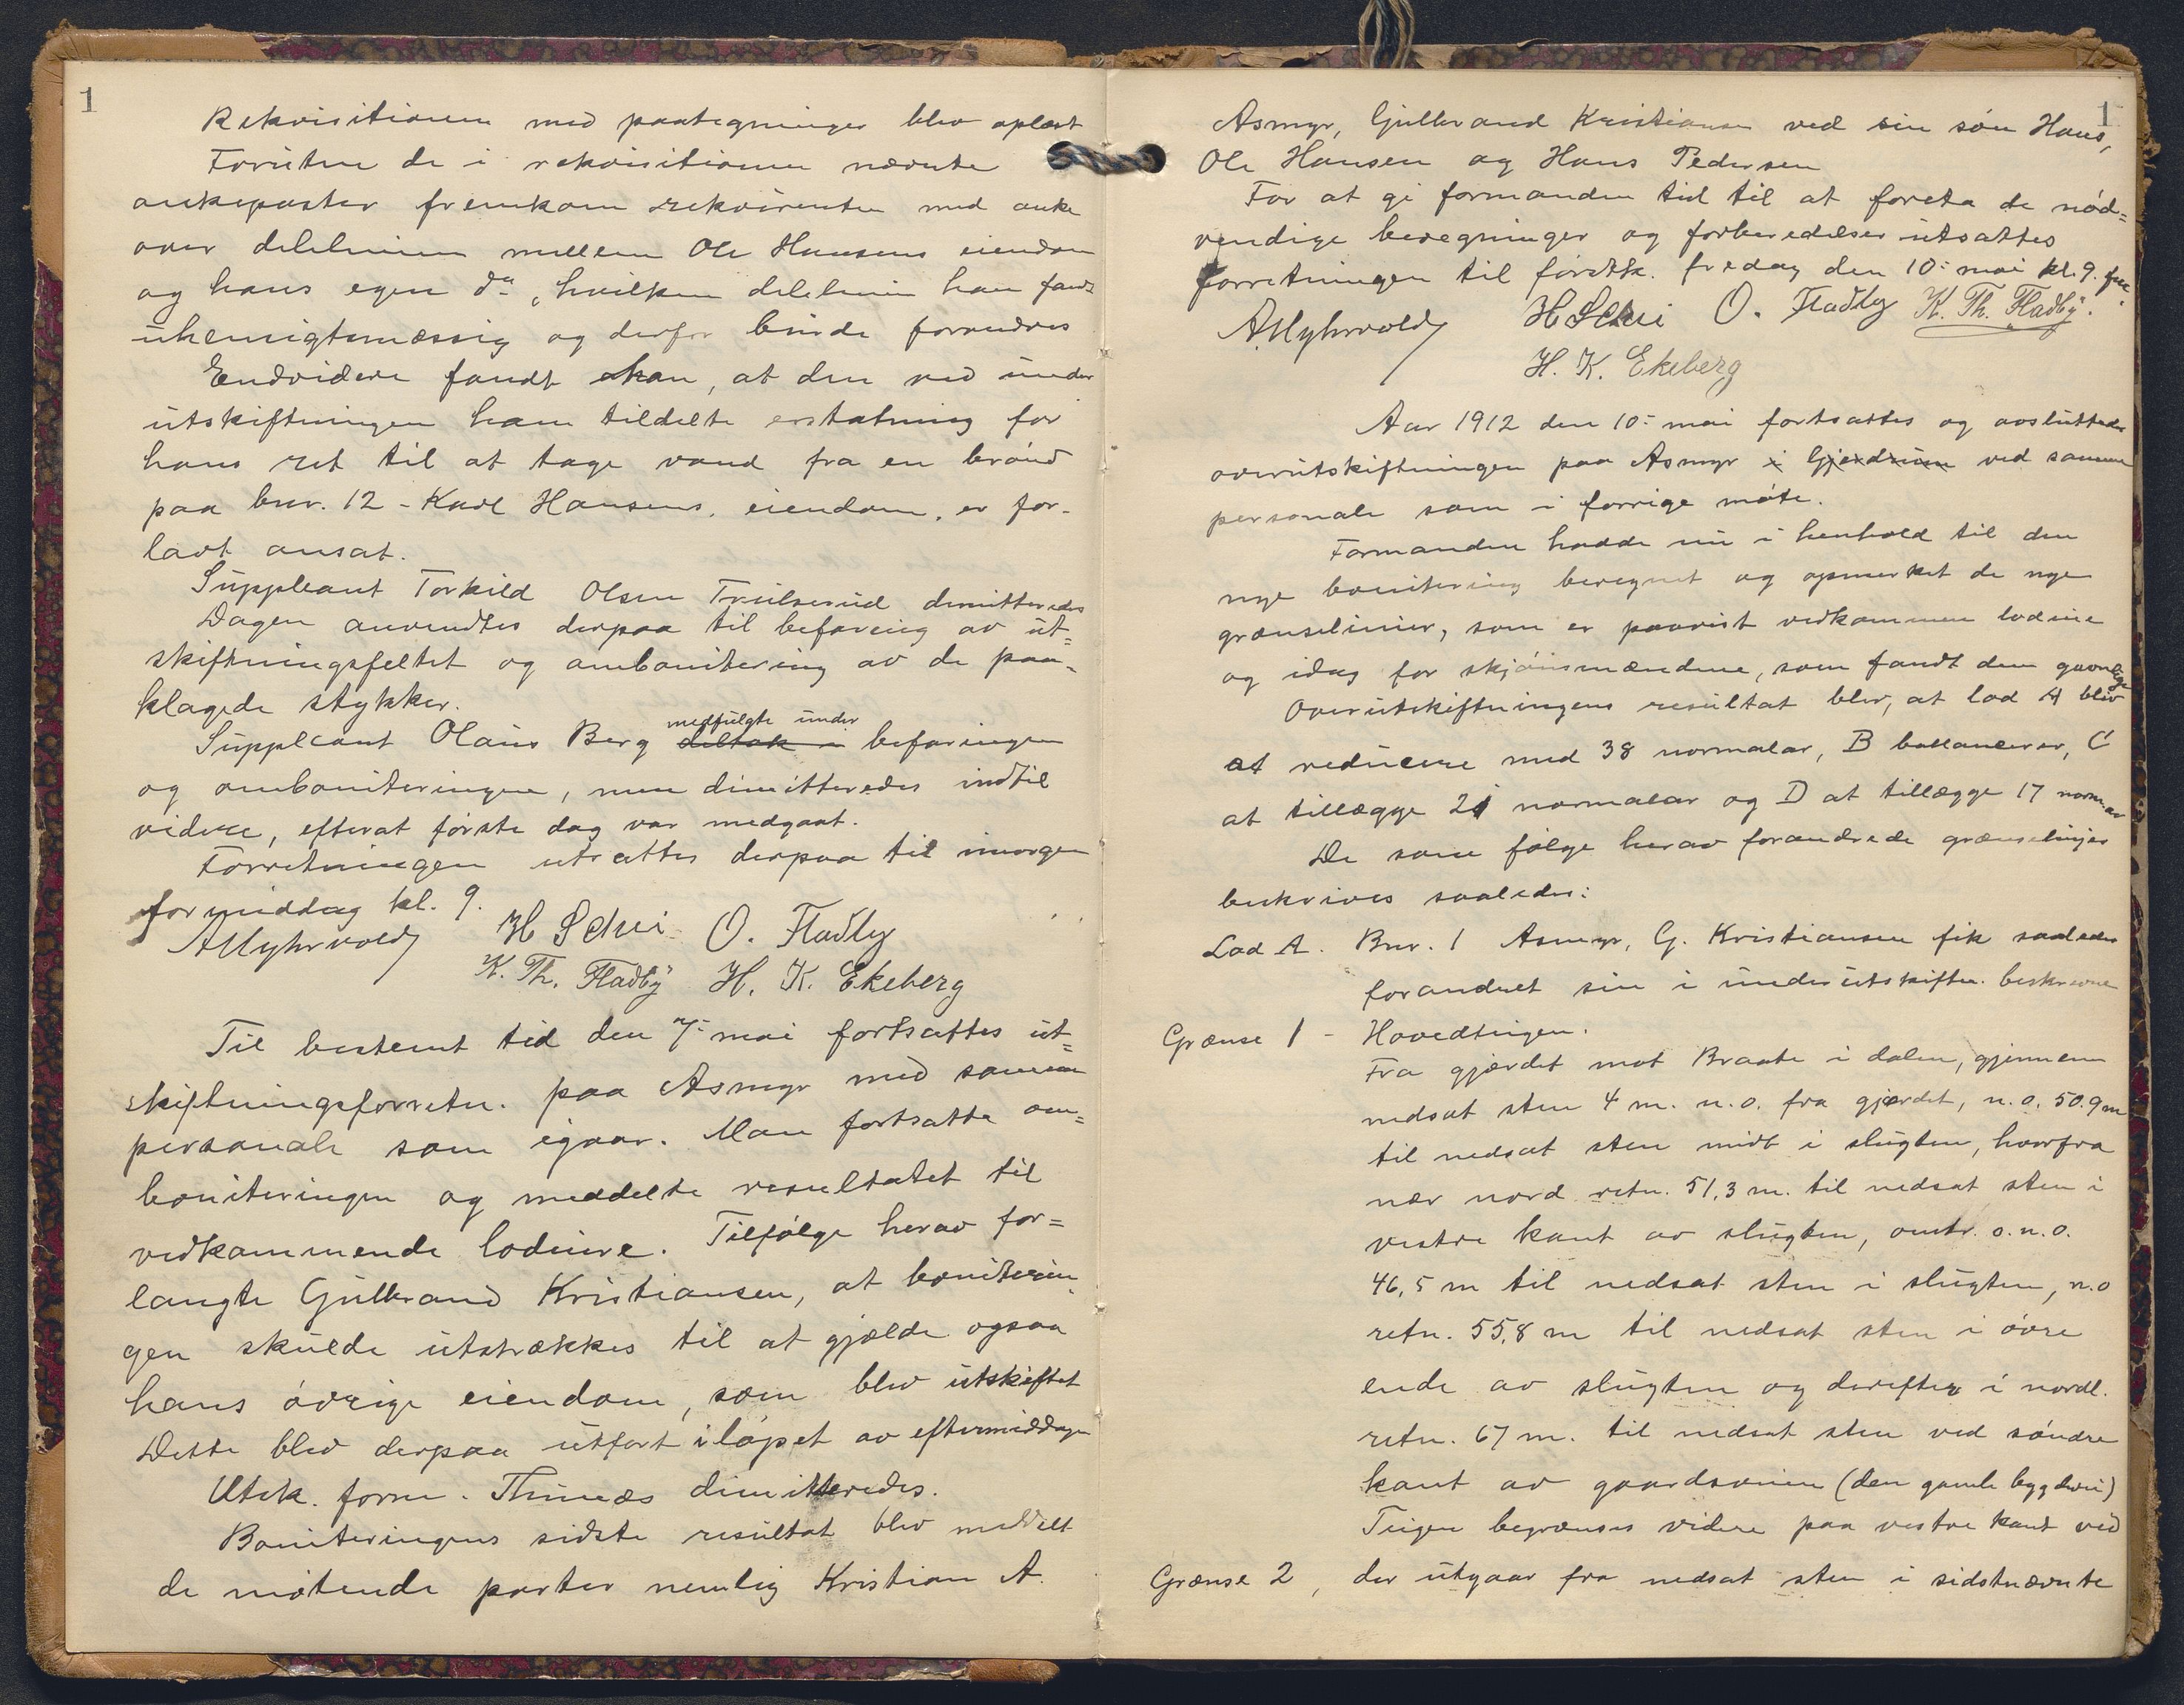 1
Rekvisitionen med paategninger blev oplæst
Foruten de i rekvisitionen nævnte
ankeposter fremkom rekvirenten med anke
over delelinien mellem Ole Hansens eiendom
og hans egen do, hvilken delelinie han fandt
uhensigtsmæssig og derfor burde forandres
Endvidere fandt han, at den ved under
utskiftningen ham tildelte erstatning for
hans ret til at tage vand fra en brönd
paa bnr. 12 - Karl Hansens, eiendom, er for-
lavt ansat.
Suppleant Torkild Olsen Trulserud dimitteredes
Dagen anvendtes derpaa til befaring av ut=
skiftningsfeltet og ombonitering av de paa-
klagede stykker.
medfulgte under
Suppleant Olaus Berg deltok i befaringen
og omboniteringen, men dimitteredes indtil
videre, efterat förste dag var medgaat.
Forretningen utsattes derpaa til imorgen
formiddag kl. 9.
A Myhrvold H Schei O. Fladby
K. Th. Fladby H. K. Ekeberg
Til bestemt tid den 7- mai fortsattes ut=
skiftningsforretn. paa Asmyr med samme
personale som igaar. Man fortsatte om=
boniteringen og meddelte resultatet til
vedkommende lodeiere. Tilfölge herav for=
langte Gulbrand Kristiansen, at boniterin-
gen skulde utstrækkes til at gjælde ogsaa
hans övrige eiendom, som blev utskiftet
Dette blev derpaa utfört i löpet av eftermiddagen
Utsk. form. Thinæs dimitteredes.
Boniteringens sidste resultat blev meddelt
de mötende parter nemlig Kristian A.
1
Asmyr, Gulbrand Kristiansen ved sin sön Hans,
Ole Hansen og Hans Pedersen
For at gi formanden tid til at foreta de nöd=
vendige beregninger og forberedelser utsattes
forretningen til förstk. fredag den 10- mai kl. 9. fm.
A Myhrvold H Schei O. Fladby K. Th. Fladby.
H. K. Ekeberg
Aar 1912 den 10- mai fortsattes og avsluttedes
overutskiftningen paa Asmyr i Gjerdrum ved samme
personale som i forrige möte.
Formanden hadde nu i henhold til den
nye bonitering beregnet og opmerket de nye
grænselinier, som er paavist vedkommen lodeiere
og idag for skjönsmændene, som fandt dem gavnlige
Overutskiftningens resultat blev, at lod A blir
at reducere med 38 normalar, B ballancerer, C
at tillægge 21 normalar og D at tillægge 17 normalar
De som fölge herav forandrede grænselinjer
beskrives saaledes:
Lod A. Bnr. 1 Asmyr, G. Kristiansen fik saaledes
forandret sin i underutskiftn. beskrevne
Grænse 1 - Hovedteigen.
Fra gjærdet mot Braate i dalen, gjennem
nedsat sten 4 m. n.o. fra gjærdet, n.o. 50.9 m
til nedsat sten midt i slugten, hvorfra
nær nord retn. 51,3 m. til nedsat sten i
vestre kant av slugten, omtr. o.n.o.
46,5 m til nedsat sten i slugten, n.o
retn. 55,8 m til nedsat sten i övre
ende av slugten og derefter i nordl.
retn. 67 m. til nedsat sten ved söndre
kant av gaardsveien (den gamle bygdevei)
Teigen begrænses videre paa vestre kant ved
Grænse 2, der utgaar fra nedsat sten i sidstnævnte